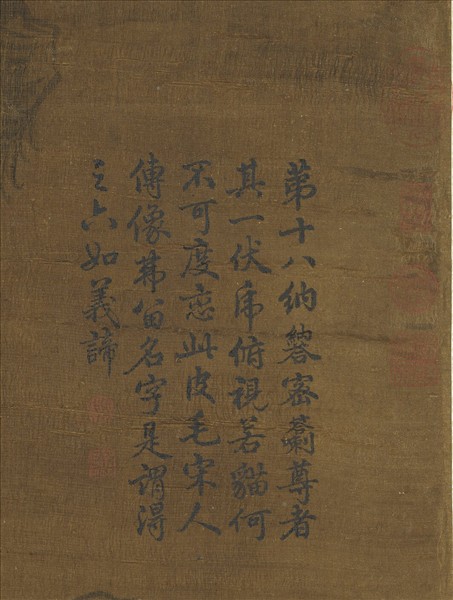 第十八納密答喇尊者
其一伏虎俯視若貓何
不可度戀此皮毛宋人
傳像弗留名字是謂得
之六如義諦